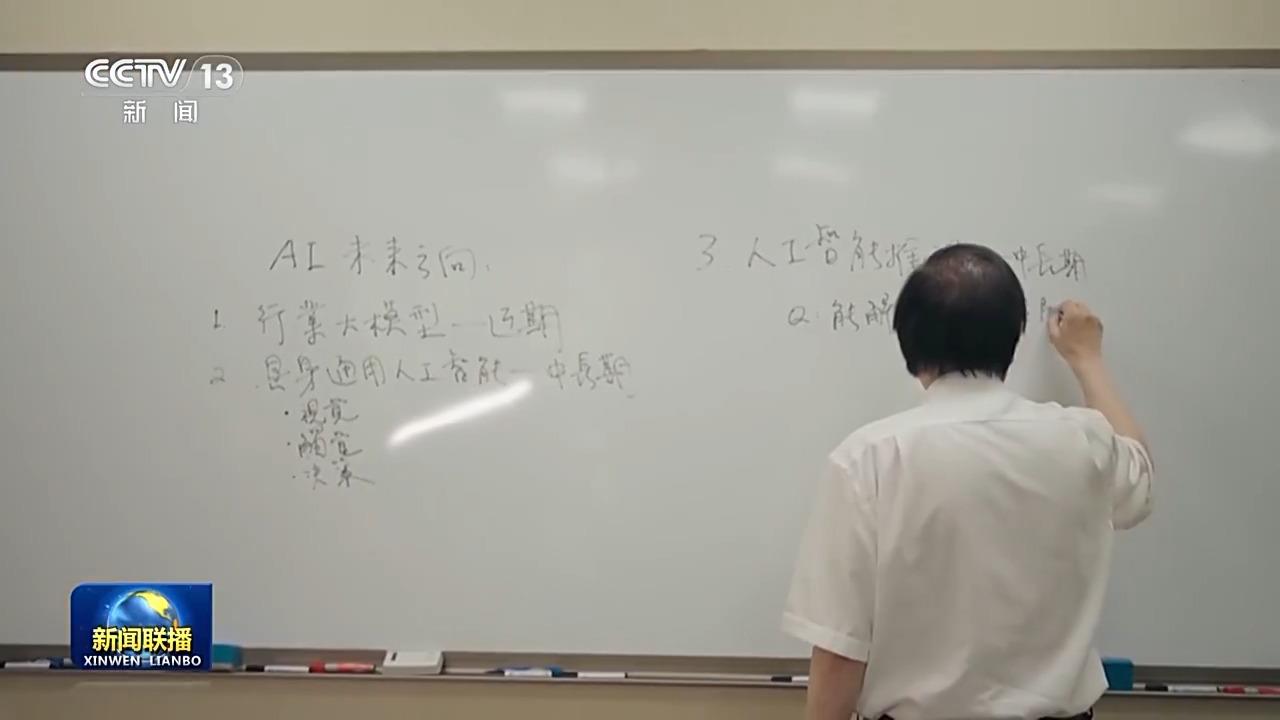 CCTV 13
新闻
AI 未来方向
1. 行業大模型—近期
2. 具身通用人工智能—中長期
· 視覚
· 觸覚
· 决策
3. 人工智能推 中長期
Q: 能解
新闻联播
XINWEN LIANBO